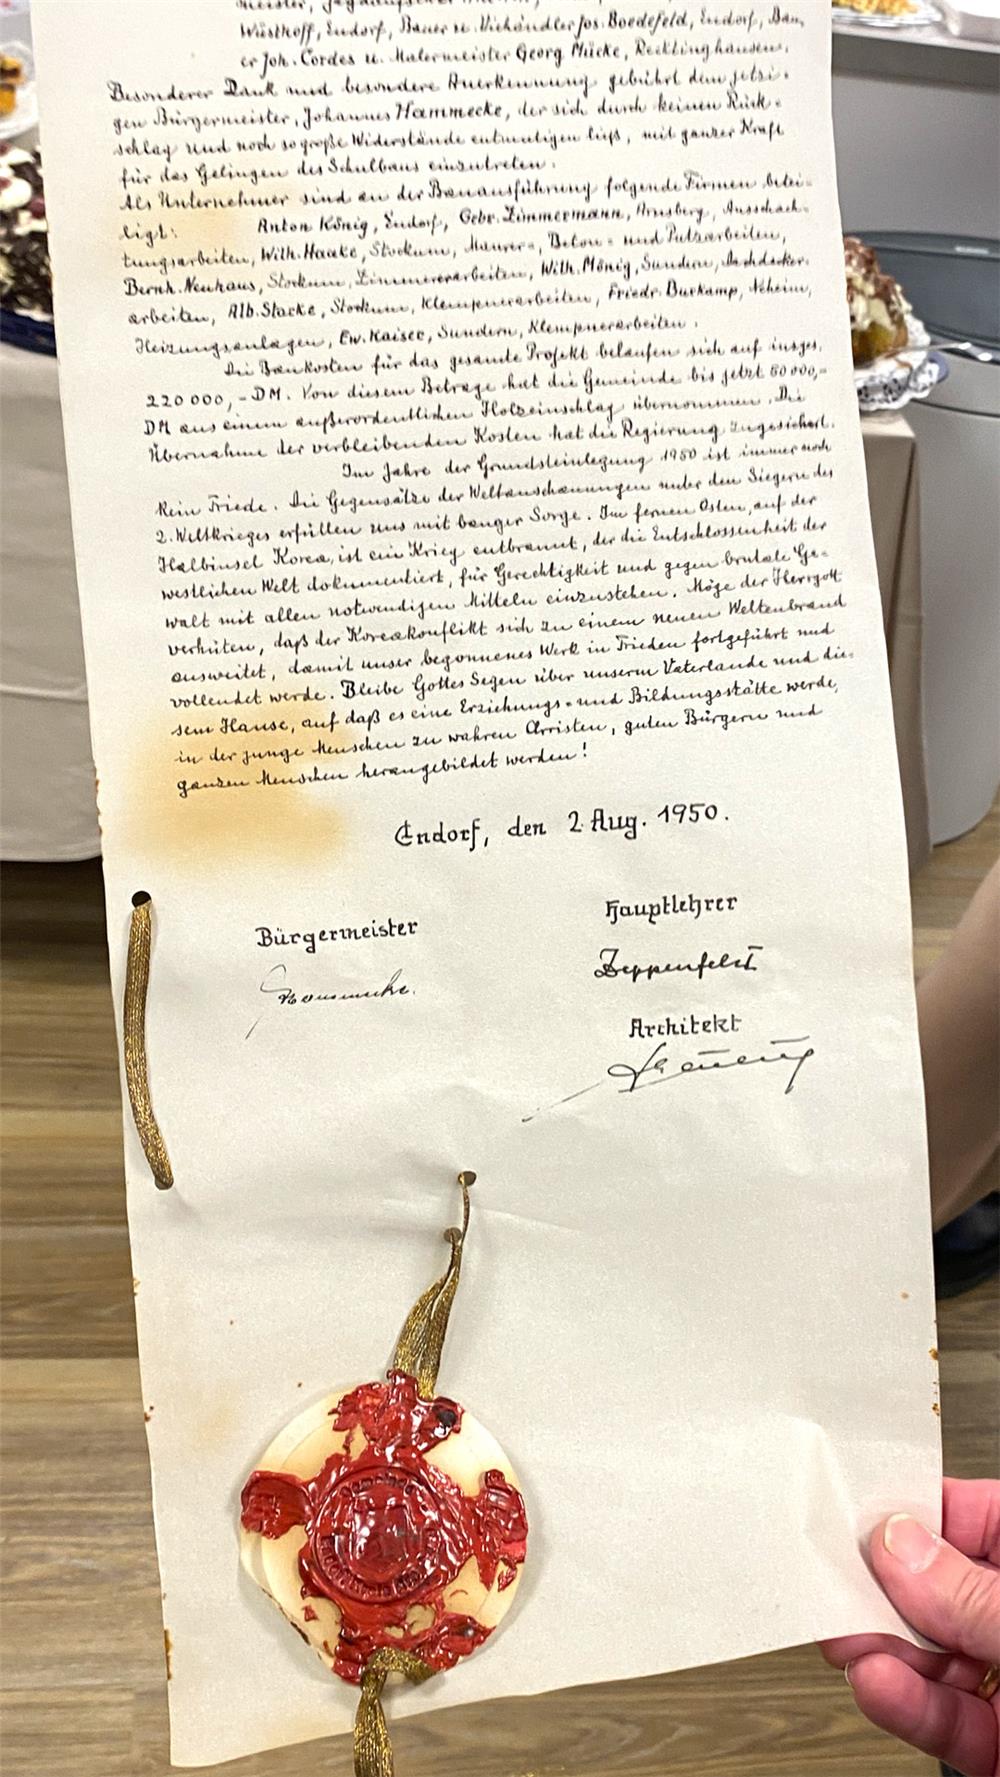 meister,
Wüsthoff, Endorf, Bauer u. Viehändler Jos. Boedefeld, Endorf, Bau-
er Joh. Cordes u. Malermeister Georg Mücke, Recklinghausen.
Besonderer Dank und besondere Anerkennung gebührt dem jetzi-
gen Bürgermeister, Johannes Hammecke, der sich durch keinen Rück-
schlag und noch so große Widerstände entmutigen ließ, mit ganzer Kraft
für das Gelingen des Schulbaus einzutreten.
Als Unternehmer sind an der Bauausführung folgende Firmen betei-
ligt: Anton König, Endorf, Gebr. Zimmermann, Arnsberg, Ausschach-
tungsarbeiten, Wilh. Haake, Stockum, Maurer-, Beton- und Putzarbeiten,
Bernh. Neuhaus, Stockum, Zimmererarbeiten, Wilh. Mönig, Sundern, Dachdecker-
arbeiten, Alb. Stacke, Stockum, Klempnerarbeiten, Friedr. Burkamp, Neheim,
Heizungsanlagen, Ew. Kaiser, Sundern, Klempnerarbeiten.
Die Baukosten für das gesamte Projekt belaufen sich auf insges.
220 000,- DM. Von diesem Betrage hat die Gemeinde bis jetzt 80 000,-
DM aus einem außerordentlichen Holzeinschlag übernommen. Die
Übernahme der verbleibenden Kosten hat die Regierung zugesichert.
Im Jahre der Grundsteinlegung 1950 ist immer noch
kein Friede. Die Gegensätze der Weltanschauungen unter den Siegern des
2. Weltkrieges erfüllen uns mit banger Sorge. Im fernen Osten, auf der
Halbinsel Korea, ist ein Krieg entbrannt, der die Entschlossenheit der
westlichen Welt dokumentiert, für Gerechtigkeit und gegen brutale Ge-
walt mit allen notwendigen Mitteln einzustehen. Möge der Herrgott
verhüten, daß der Koreakonflikt sich zu einem neuen Weltenbrand
ausweitet, damit unser begonnenes Werk in Frieden fortgeführt und
vollendet werde. Bleibe Gottes Segen über unserm Vaterlande und die-
sem Hause, auf daß es eine Erziehungs- und Bildungsstätte werde,
in der junge Menschen zu wahren Christen, guten Bürgern und
ganzen Menschen herangebildet werden!
Endorf, den 2. Aug. 1950.
Bürgermeister
Hammecke.
Hauptlehrer
Zeppenfeld
Architekt
Gemeinde